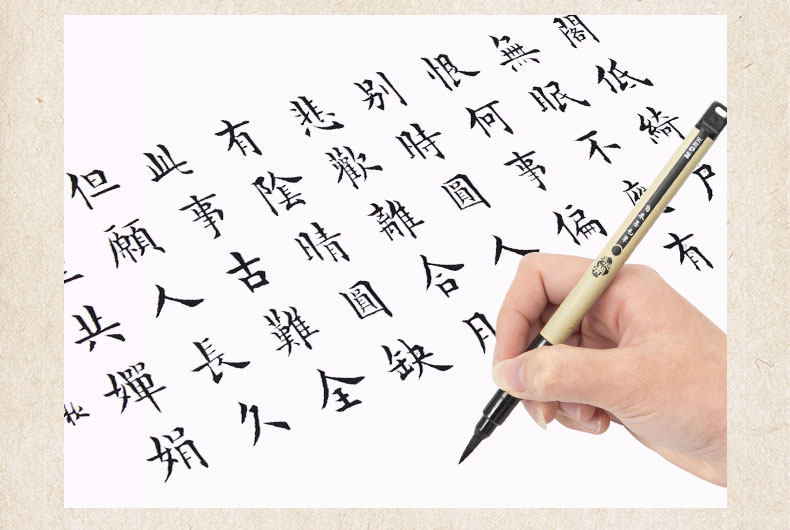 閣低綺户
無眠不有
恨何事偏
别時圓人
悲歡離合月
有陰晴圓缺
此事古難全
但願人長久
共嬋娟